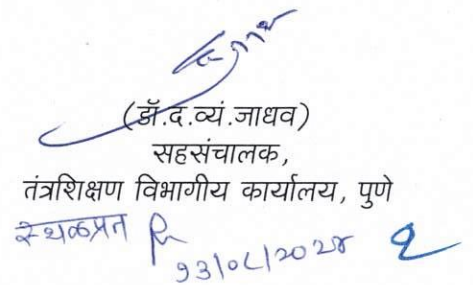 (डॉ.द.व्यं.जाधव)
सहसंचालक,
तंत्रशिक्षण विभागीय कार्यालय, पुणे
स्थळप्रत
१३/०८/२०२४